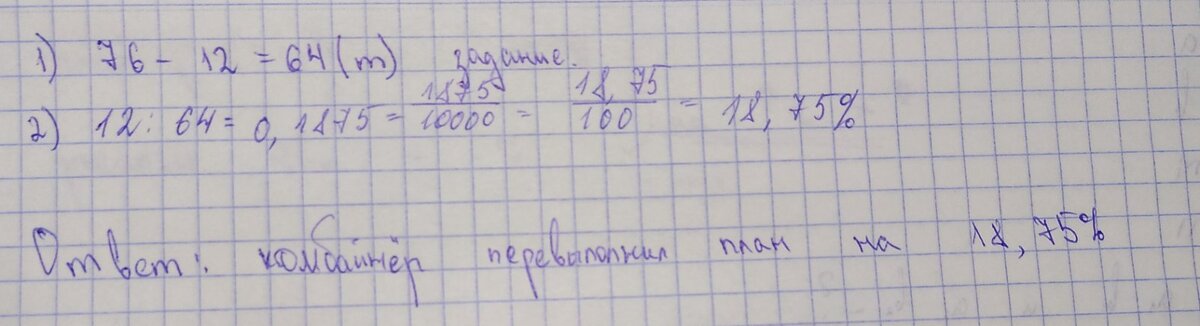 1) 76 - 12 = 64 (т) задание.
2) 12 : 64 = 0,1875 = 1875/10000 = 18,75/100 = 18,75%
Ответ: комбайнёр перевыполнил план на 18,75%